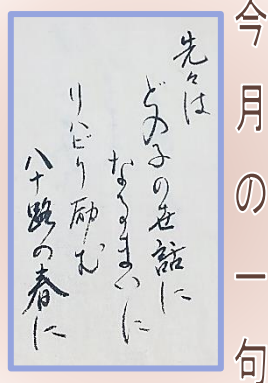 今月の一句
先々は
どの子の世話に
なるまいに
リハビリ励む
八十路の春に